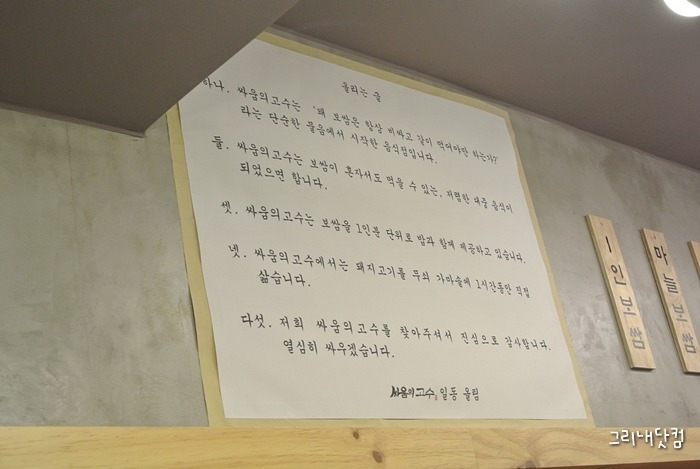 올리는 글
하나. 싸움의고수는 '왜 보쌈은 항상 비싸고 같이 먹어야만 하는가?'
라는 단순한 물음에서 시작한 음식점입니다.
둘. 싸움의고수는 보쌈이 혼자서도 먹을 수 있는, 저렴한 대중 음식이
되었으면 합니다.
셋. 싸움의고수는 보쌈을 1인분 단위로 밥과 함께 제공하고 있습니다.
넷. 싸움의고수에서는 돼지고기를 무쇠 가마솥에 1시간동안 직접
삶습니다.
다섯. 저희 싸움의고수를 찾아주셔서 진심으로 감사합니다.
열심히 싸우겠습니다.
싸움의고수 일동 올림
1인보쌈
마늘보쌈
그리내닷컴